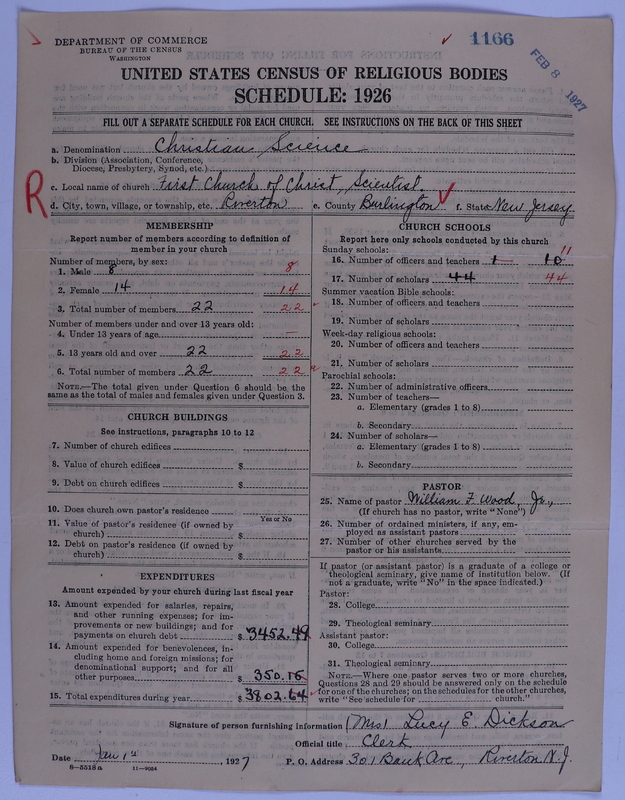 DEPARTMENT OF COMMERCE
BUREAU OF THE CENSUS
WASHINGTON
1166
FEB 8 1927
UNITED STATES CENSUS OF RELIGIOUS BODIES
SCHEDULE: 1926
FILL OUT A SEPARATE SCHEDULE FOR EACH CHURCH. SEE INSTRUCTIONS ON THE BACK OF THIS SHEET
a. Denomination Christian Science
b. Division (Association, Conference, Diocese, Presbytery, Synod, etc.)
R
c. Local name of church First Church of Christ, Scientist.
d. City, town, village, or township, etc. Riverton e. County Burlington f. State New Jersey
MEMBERSHIP
Report number of members according to definition of member in your church
Number of members, by sex:
1. Male 8 8
2. Female 14 14
3. Total number of members 22 22
Number of members under and over 13 years old:
4. Under 13 years of age —
5. 13 years old and over 22 22
6. Total number of members 22 22
NOTE.—The total given under Question 6 should be the same as the total of males and females given under Question 3.
CHURCH BUILDINGS
See instructions, paragraphs 10 to 12
7. Number of church edifices
8. Value of church edifices $
9. Debt on church edifices $
10. Does church own pastor's residence
Yes or No
11. Value of pastor's residence (if owned by church) $
12. Debt on pastor's residence (if owned by church) $
EXPENDITURES
Amount expended by your church during last fiscal year
13. Amount expended for salaries, repairs, and other running expenses; for improvements or new buildings; and for payments on church debt $ 3452.49
14. Amount expended for benevolences, including home and foreign missions; for denominational support; and for all other purposes $ 350.15
15. Total expenditures during year $ 3802.64
CHURCH SCHOOLS
Report here only schools conducted by this church
Sunday schools:
16. Number of officers and teachers 1 10 11
17. Number of scholars 44 44
Summer vacation Bible schools:
18. Number of officers and teachers
19. Number of scholars
Week-day religious schools:
20. Number of officers and teachers
21. Number of scholars
Parochial schools:
22. Number of administrative officers
23. Number of teachers—
a. Elementary (grades 1 to 8)
b. Secondary
24. Number of scholars—
a. Elementary (grades 1 to 8)
b. Secondary
PASTOR
25. Name of pastor William F. Wood, Jr.,
(If church has no pastor, write "None")
26. Number of ordained ministers, if any, employed as assistant pastors
27. Number of other churches served by the pastor or his assistants
If pastor (or assistant pastor) is a graduate of a college or theological seminary, give name of institution below. (If not a graduate, write "No" in the space indicated.)
Pastor:
28. College
29. Theological seminary
Assistant pastor:
30. College
31. Theological seminary
NOTE.—Where one pastor serves two or more churches, Questions 28 and 29 should be answered only on the schedule for one of the churches; on the schedules for the other churches, write "See schedule for church."
Signature of person furnishing information (Mrs) Lucy E. Dickson
Official title Clerk
Date Jan 1st, 1927 P. O. Address 301 Bank Ave., Riverton N.J.
8—5518a 11—9034